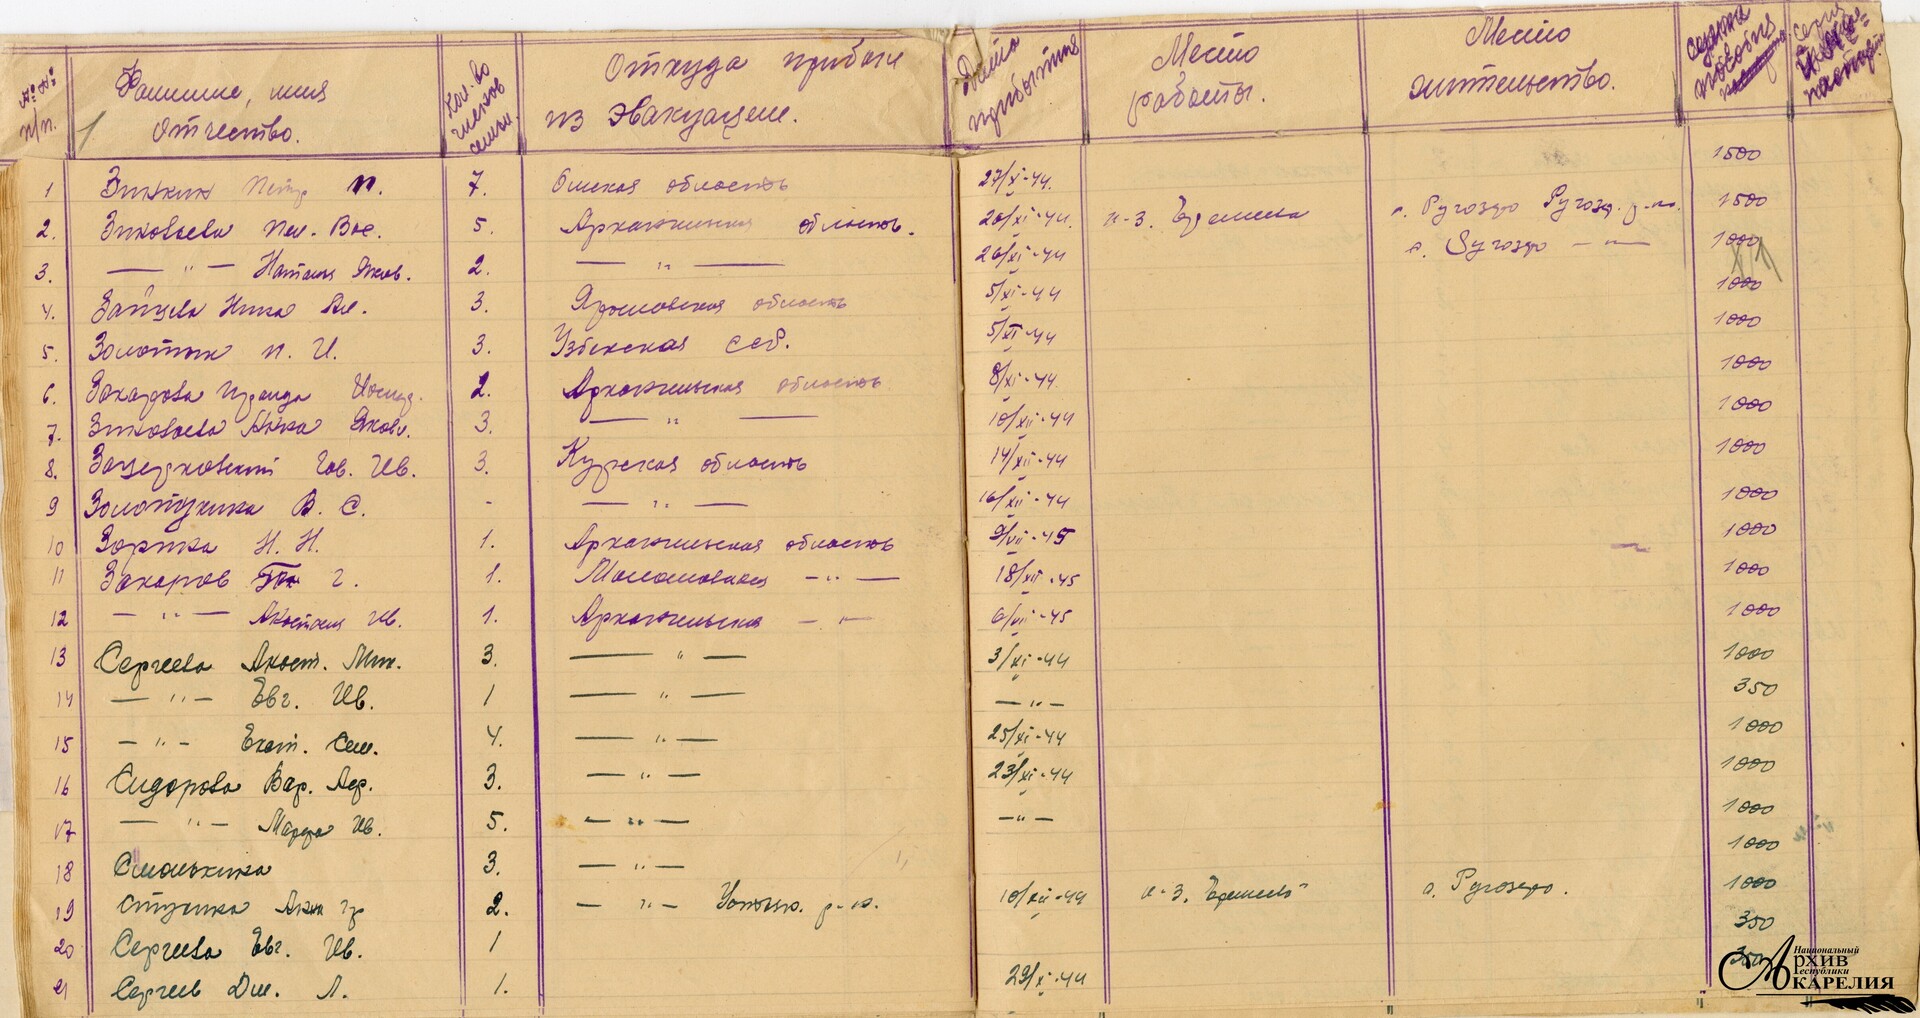 №№ п/п. Фамилие, имя отчество. Кол-во членов семьи. Откуда прибыл из эвакуации. Дата прибытия Место работы. Место жительство. сумма пособия серия паспорт.
1 Зинкин Петр П. 7. Омская область 27/XI-44. 1500
2. Зиновьева Пел. Вас. 5. область. 20/XI-44. к-з. с. Ругозеро Ругоз. р-на. 1500
3. — " — Наталия Яков. 2. — " — 26/XI-44 с. Ругозеро — " — 1000
4. Зайцева Нина Ал. 3. Ярославская область 5/XI-44 1000
5. Золотых П. И. 3. Узбекская ССР. 5/XI-44 1000
6. Захарова 2. Архангельская область 8/XI-44. 1000
7. Зиновьева Анна Яковл. 3. — " — 10/XII-44 1000
8. Ив. 3. Курская область 14/XII-44 1000
9 Золотухина В. С. - — " — 16/XII-44 1000
10 Н. Н. 1. Архангельская область 9/VII-45 1000
11 Захаров Г. 1. — " — 18/XII-45 1000
12 — " — Ив. 1. Архангельская — " — 6/VII-45 1000
13 Сергеева Анаст. Мих. 3. — " — 3/XI-44 1000
14 — " — Евг. Ив. 1 — " — — " — 350
15 — " — Екат. Сем. 4. — " — 25/XI-44 1000
16 Сидорова Вар. 3. — " — 23/XI-44 1000
17 — " — Марфа Ив. 5. — " — — " — 1000
18 Смолькина 3. — " — 1000
19 Ступина Анна Гр 2. — " — р-н. 10/XII-44 к-з. с. Ругозеро. 1000
20 Сергеева Евг. Ив. 1 350
21 Сергеев Дм. Л. 1. 29/X-44 350
Национальный
Архив
Республики
Карелия